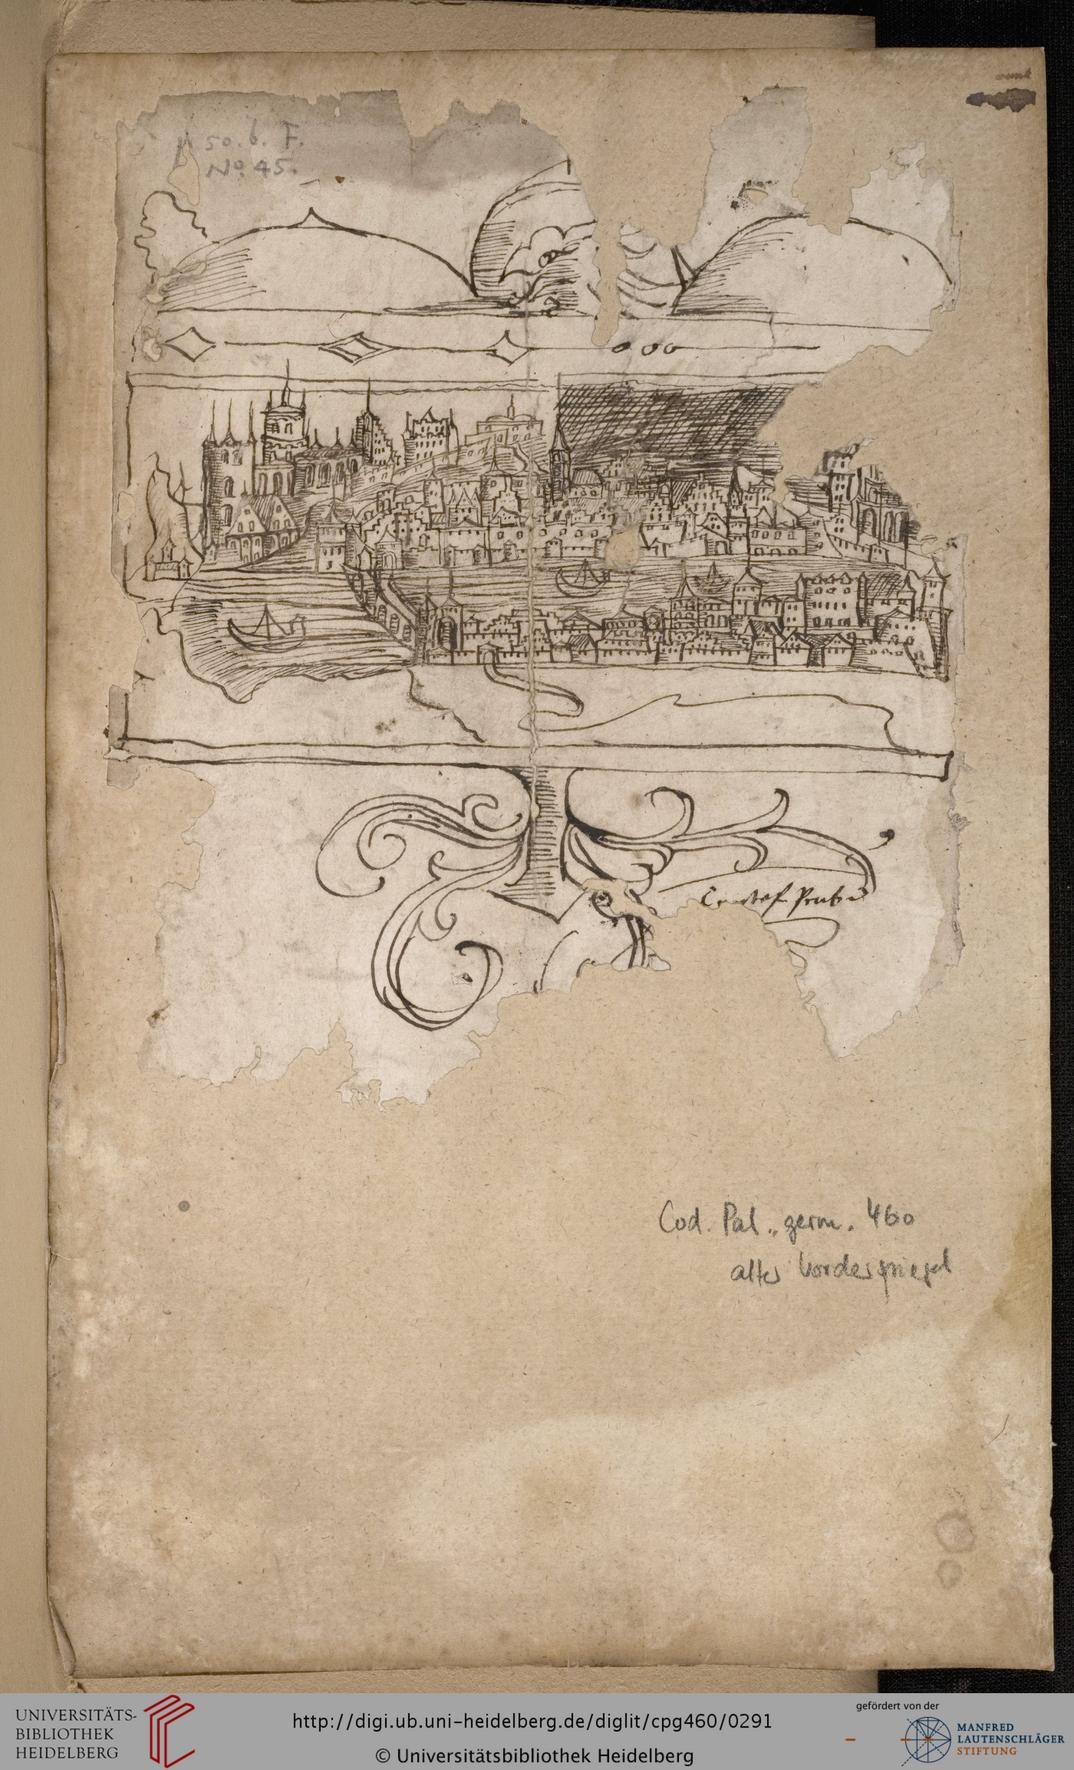 50. b. F.
No. 45.
Cod. Pal. germ. 460
alter Vorderspiegel
UNIVERSITÄTS-
BIBLIOTHEK
HEIDELBERG
http://digi.ub.uni-heidelberg.de/diglit/cpg460/0291
© Universitätsbibliothek Heidelberg
gefördert von der
MANFRED
LAUTENSCHLÄGER
STIFTUNG